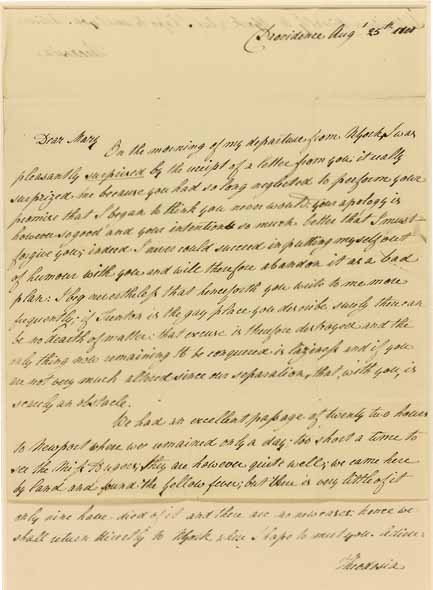 Providence Aug' 25th 1800
Dear Mary
On the morning of my departure from NYork, I was
pleasantly surprized by the receipt of a letter from you; it really
surprized me because you had so long neglected to perform your
promise that I began to think you never would: your apology is
however so good and your intentions so much better that I must
forgive you; indeed I never could succeed in putting myself out
of humour with you and will therefore abandon it as a bad
plan: I beg nevertheless that henceforth you write to me more
frequently; if Trenton is the gay place you describe surely there can
be no dearth of matter: that excuse is therefore destroyed and the
only thing now remaining to be conquered is laziness and if you
are not very much altered since our separation, that, with you, is
scarcely an obstacle.
We had an excellent passage of twenty two hours
to Newport where we remained only a day: too short a time to
see the Miss they are however quite well; we came here
by land and found the yellow fever; but there is very little of it
only nine have died of it and there are no new cases: hence we
shall return directly to NYork where I hope to meet you. Adieu.
Theodosia